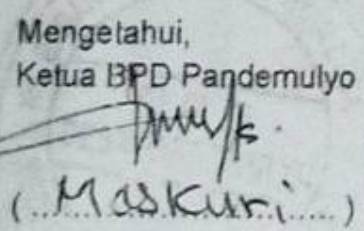 Mengetahui,
Ketua BPD Pandemulyo
(..Maskuri.....)